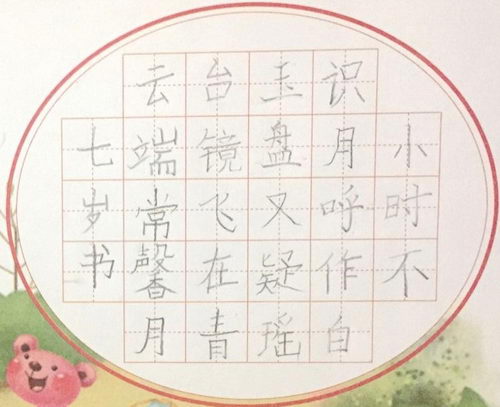 小时不
识月呼作白
玉盘又疑瑶
台镜飞在青
云端常馨月
七岁书